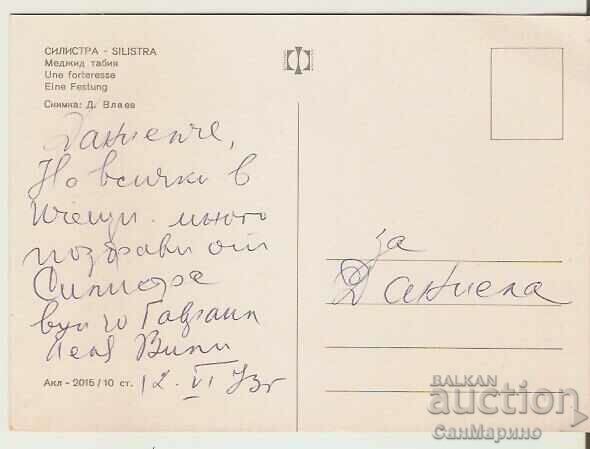 СИЛИСТРА - SILISTRA
Меджид табия
Une forteresse
Eine Festung
Снимка: Д. Влаев
Даниепче,
На всички в
много
поздрави от
Силистра
вуйчо
Леля Вили
Акл - 2015/10 ст. 12. VI 73г
за
Даниела
BALKAN
auction
СанМарино